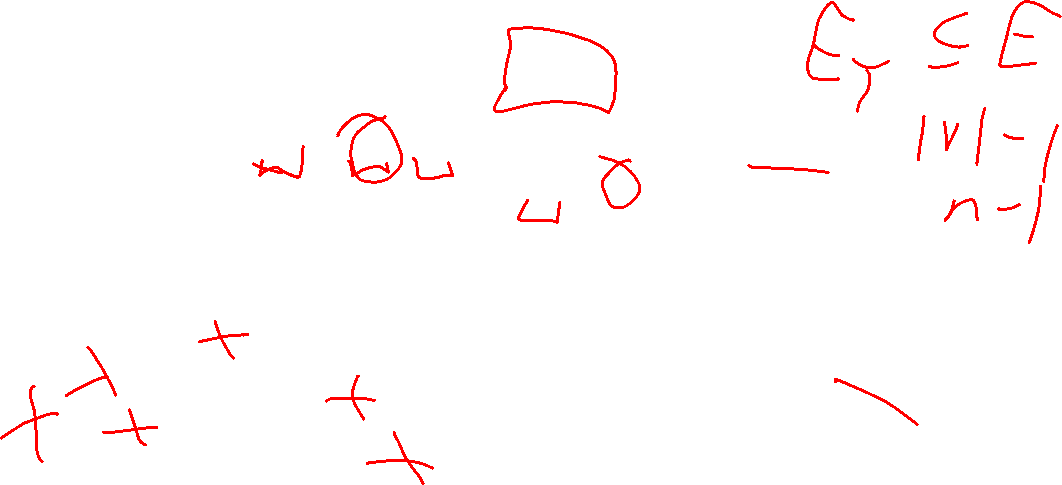 E_T ⊆ E
|V| - 1
n - 1